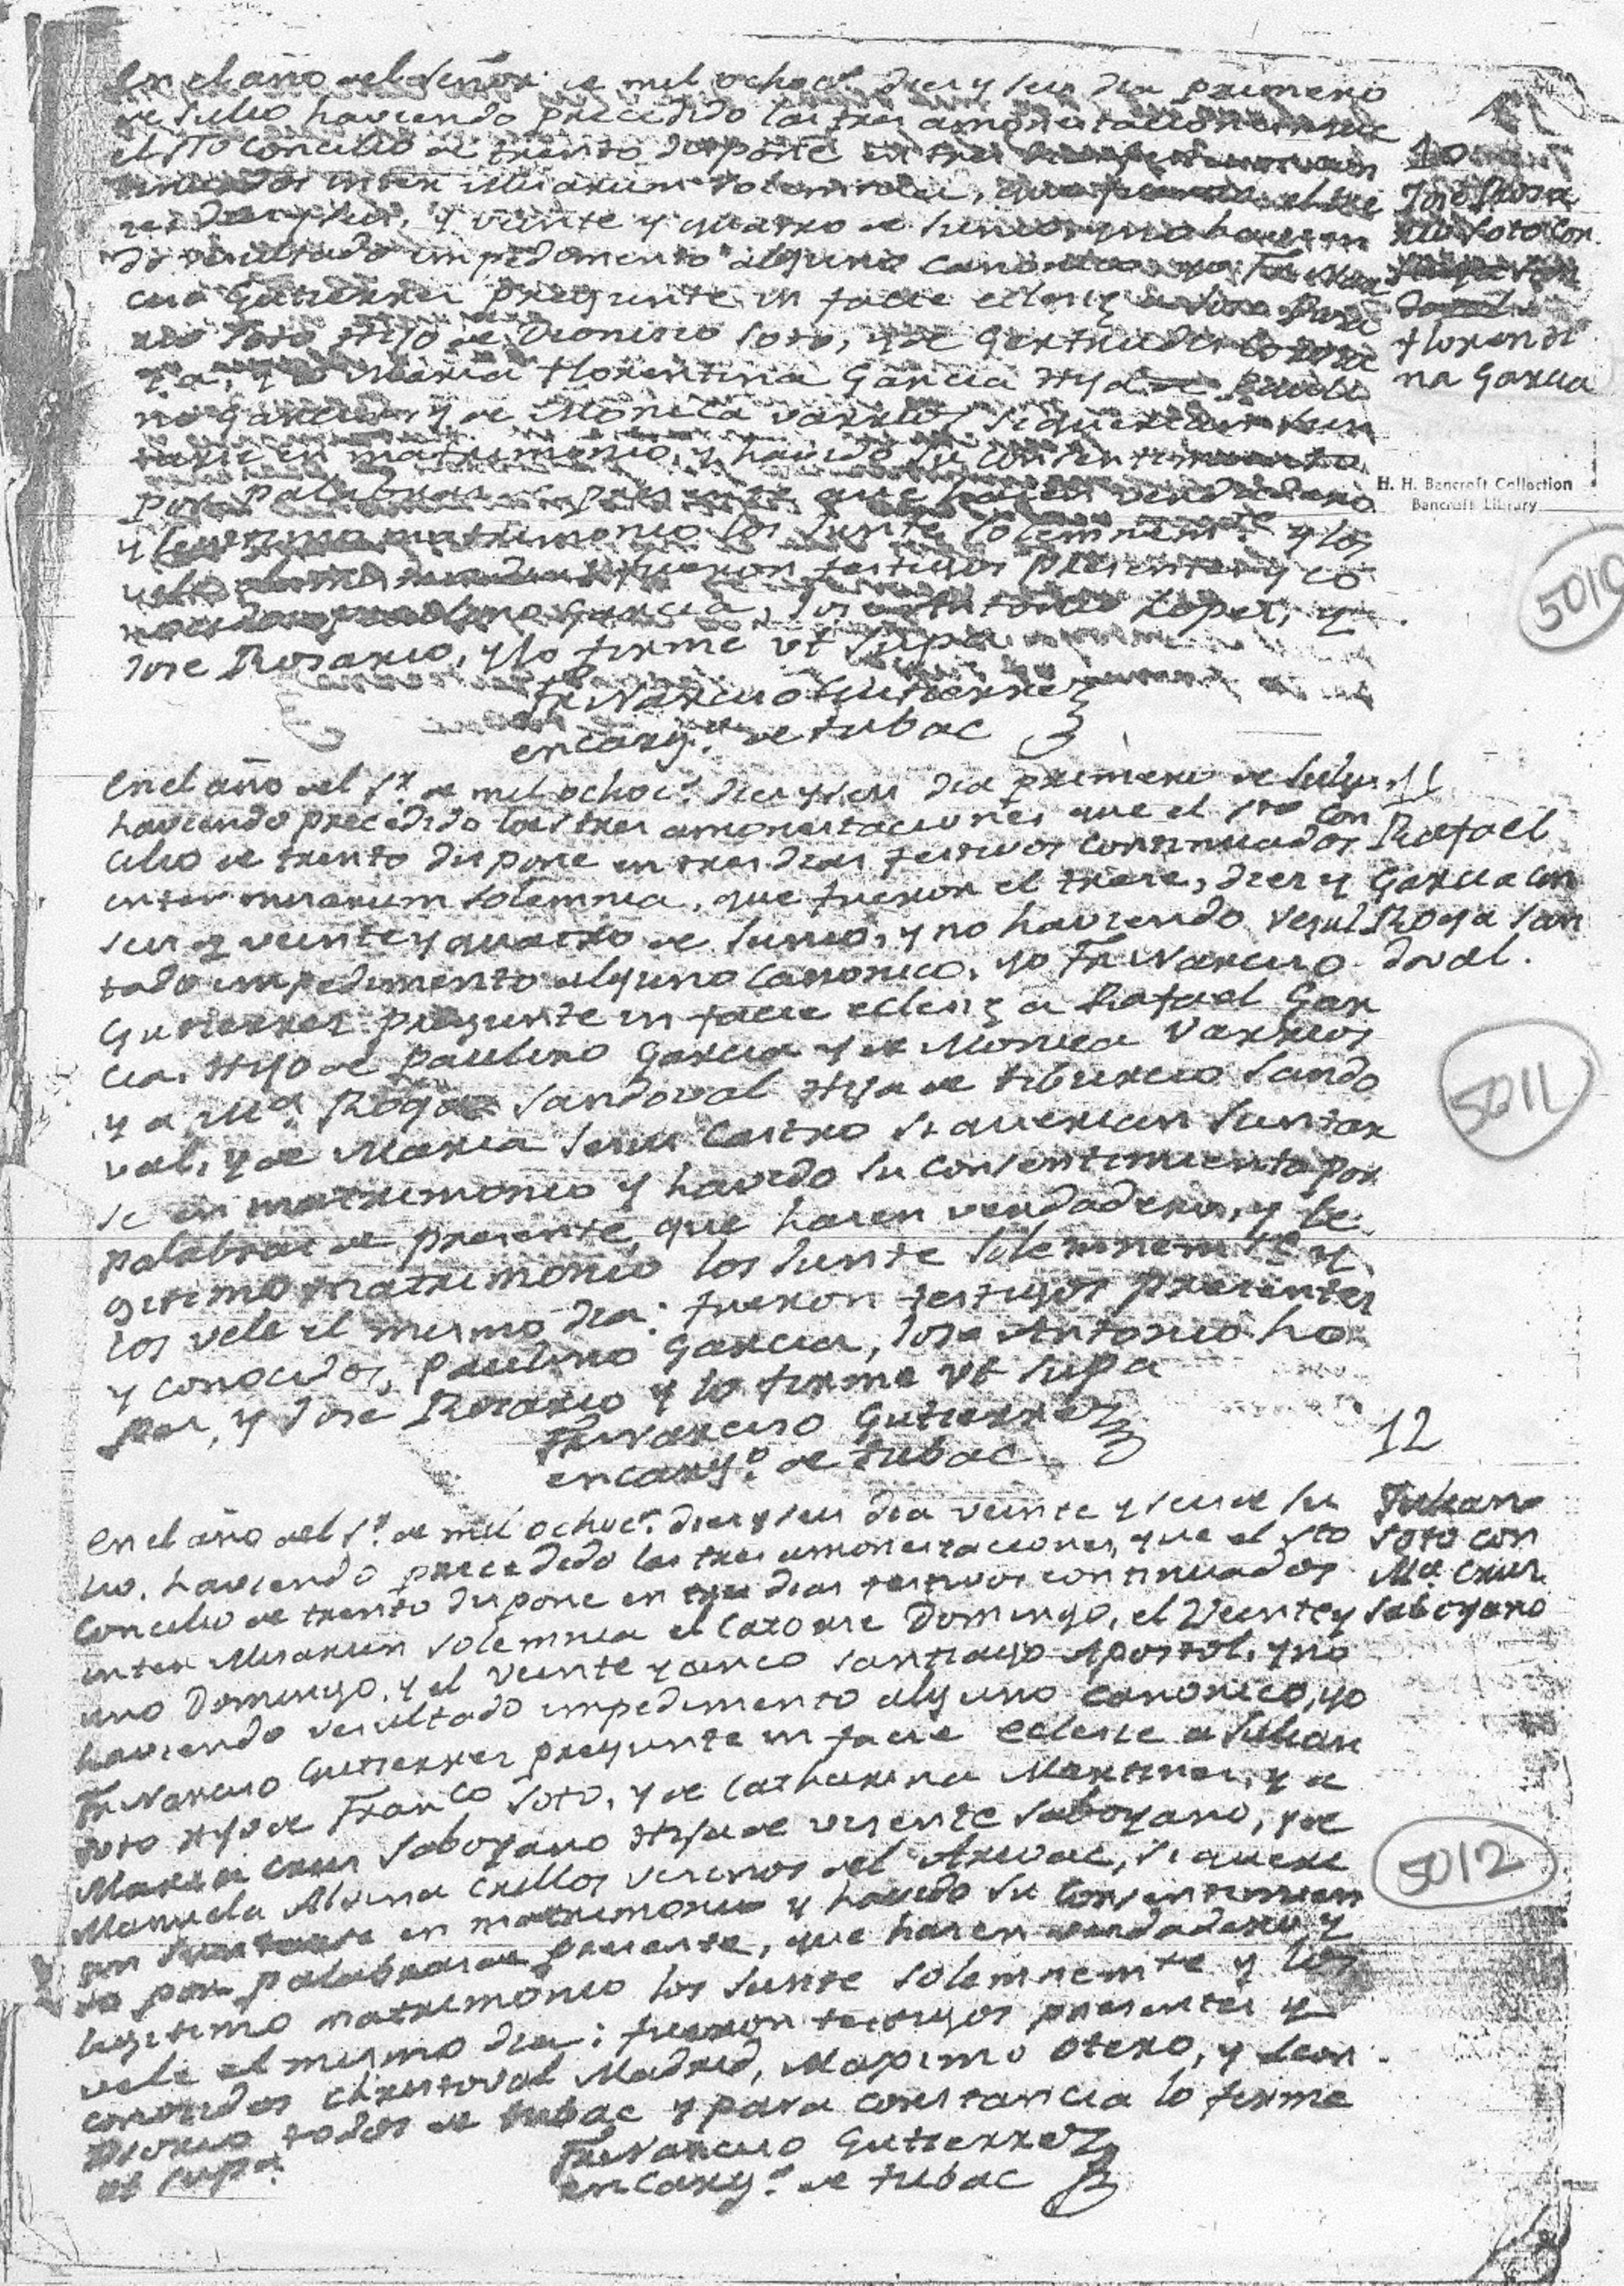 En el año del Señor de mil ochoc.s diez y seis dia primero
de Julio haviendo precedido las tres amonestaciones que
el Sto Concilio de trento dispone en tres
inter Misarum Solemnia, que fueron el tre
ce diez y seis, y veinte y quatro de Junio, y no havien
do resultado impedimento alguno canonico yo Fr. Nar
ciso Gutierrez pregunte in facie eclesiȩ a Jose Rosa
rio Soto Hijo de Dionicio Soto, y de Gertrudis
y a Maria Florentina Garcia Hija de Pauli
no Garcia y de Monica Varrios si querian Jun
tarse en matrimonio, y havido su consentimiento
por palabras de presente que hacen verdadero
y legitimo matrimonio los Junte solemnem.te y los
vele fueron testigos presentes y co
nocidos Paulino Garcia, Jose Antonio Lopez, y
Jose Rosario, y lo firme ut supa
Fr. Narciso Gutierrez
encarg.o de tubac
10
Jose Rosa
rio Soto con
Florenti
na Garcia
H. H. Bancroft Collection
Bancroft Library
5010
En el año del S.r de mil ochoc.s diez y seis dia primero de Julio
haviendo precedido las tres amonestaciones que el Sto Con
cilio de trento dispone en tres dias festivos continuados
inter misarum solemnia, que fueron el trece, diez y
seis y veinte y quatro de Junio, y no haviendo resul
tado impedimento alguno canonico, yo Fr. Narciso
Gutierrez pregunte in facie eclesiȩ a Rafael Gar
cia, Hijo de Paulino Garcia y de Monica Varrios
y a M.a Roga Sandoval Hija de tiburcio Sando
val, y de Maria Jesus Castro si querian Juntar
se en matrimonio y havido su consentimiento por
palabras de presente, que hacen verdadero, y le
gitimo matrimonio los Junte solemnem.te y
los vele el mismo dia: fueron testigos presentes
y conocidos, Paulino Garcia, Jose Antonio Lo
pez, y Jose Rosario y lo firme ut supa
Fr. Narciso Gutierrez
encarg.o de tubac
11
Rafael
Garcia con
Roga San
doval.
5011
En el año del S.r de mil ochoc.s diez y seis dia veinte y seis de Ju
lio, haviendo precedido las tres amonestaciones, que el Sto
Concilio de trento dispone en tres dias festivos continuados
inter Misarum solemnia el catorce Domingo, el Veinte y
uno Domingo, y el veinte y cinco Santiago Apostol, y no
haviendo resultado impedimento alguno canonico, yo
Fr. Narciso Gutierrez pregunte in facie eclesie a Julian
Soto Hijo de Fran.co Soto, y de Catharina Martinez, y a
Maria Cruz Saboyano Hija de Visente Saboyano, y de
Manuela Alvina Crillos vecinos del Arivac, si queri
an Juntarse en matrimonio y havido su consentimien
to por palabras de presente, que hacen verdadero y
legitimo matrimonio los Junte solemnemte y los
vele el mismo dia: fueron testigos presentes y
conocidos Christoval Madrid, Maximo Otero, y Leon
Osorio todos de tubac y para constancia lo firme
ut supa.
Fr. Narciso Gutierrez
encarg.o de tubac
12
Julian
Soto con
M.a Cruz
Saboyano
5012